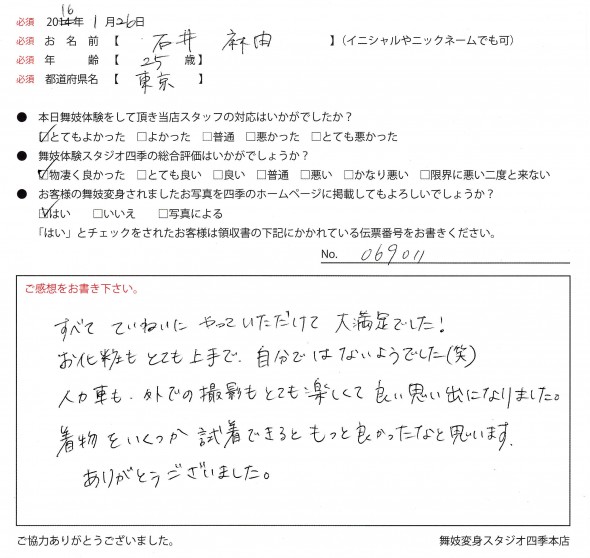 16
必須 2014年 1月26日
必須 お 名 前 【 石井 麻由 】(イニシャルやニックネームでも可)
必須 年 齢 【 25 歳】
必須 都道府県名 【 東京 】
● 本日舞妓体験をして頂き当店スタッフの対応はいかがでしたか?
☑とてもよかった □よかった □普通 □悪かった □とても悪かった
● 舞妓体験スタジオ四季の総合評価はいかがでしょうか?
☑物凄く良かった □とても良い □良い □普通 □悪い □かなり悪い □限界に悪い二度と来ない
● お客様の舞妓変身されましたお写真を四季のホームページに掲載してもよろしいでしょうか?
☑はい □いいえ □写真による
「はい」とチェックをされたお客様は領収書の下記にかかれている伝票番号をお書きください。
No. 069011
ご感想をお書き下さい。
すべて ていねいに やっていただけて 大満足でした!
お化粧も とても上手で、自分ではないようでした(笑)
人力車も、外での撮影もとても楽しくて良い思い出になりました。
着物をいくつか試着できるともっと良かったなと思います。
ありがとうございました。
ご協力ありがとうございました。 舞妓変身スタジオ四季本店